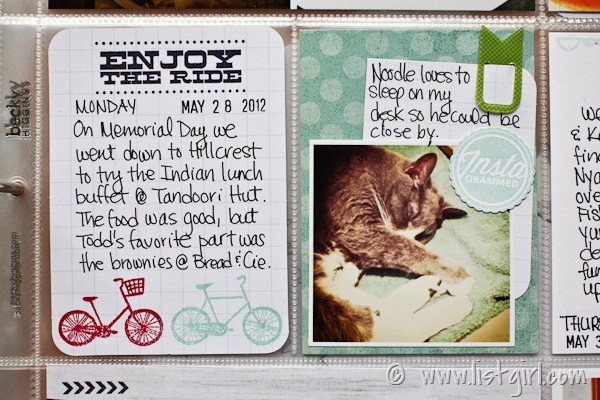 ENJOY
THE RIDE
MONDAY MAY 28 2012
On Memorial Day we
went down to Hillcrest
to try the Indian lunch
buffet @ Tandoori Hut.
The food was good, but
Todd's favorite part was
the brownies @ Bread & Cie.
becky
HIGGINS
Noodle loves to
sleep on my
desk so he could be
close by.
Insta
GRAMMED
we
& K
find
Nya
over
Fis
your
de
fun
up
THURS
MAY 3
© www.listgirl.com